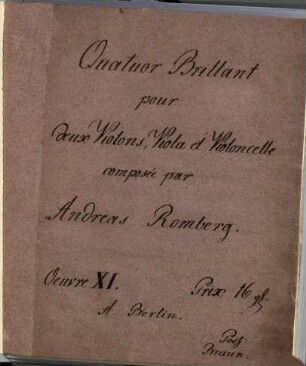 Quatuor Brillant
pour
deux Violons, Viola et Violoncelle
composée par
Andreas Romberg.
Oeuvre XI. Prix 16 gl.
A Berlin.
Poss:
Braun.